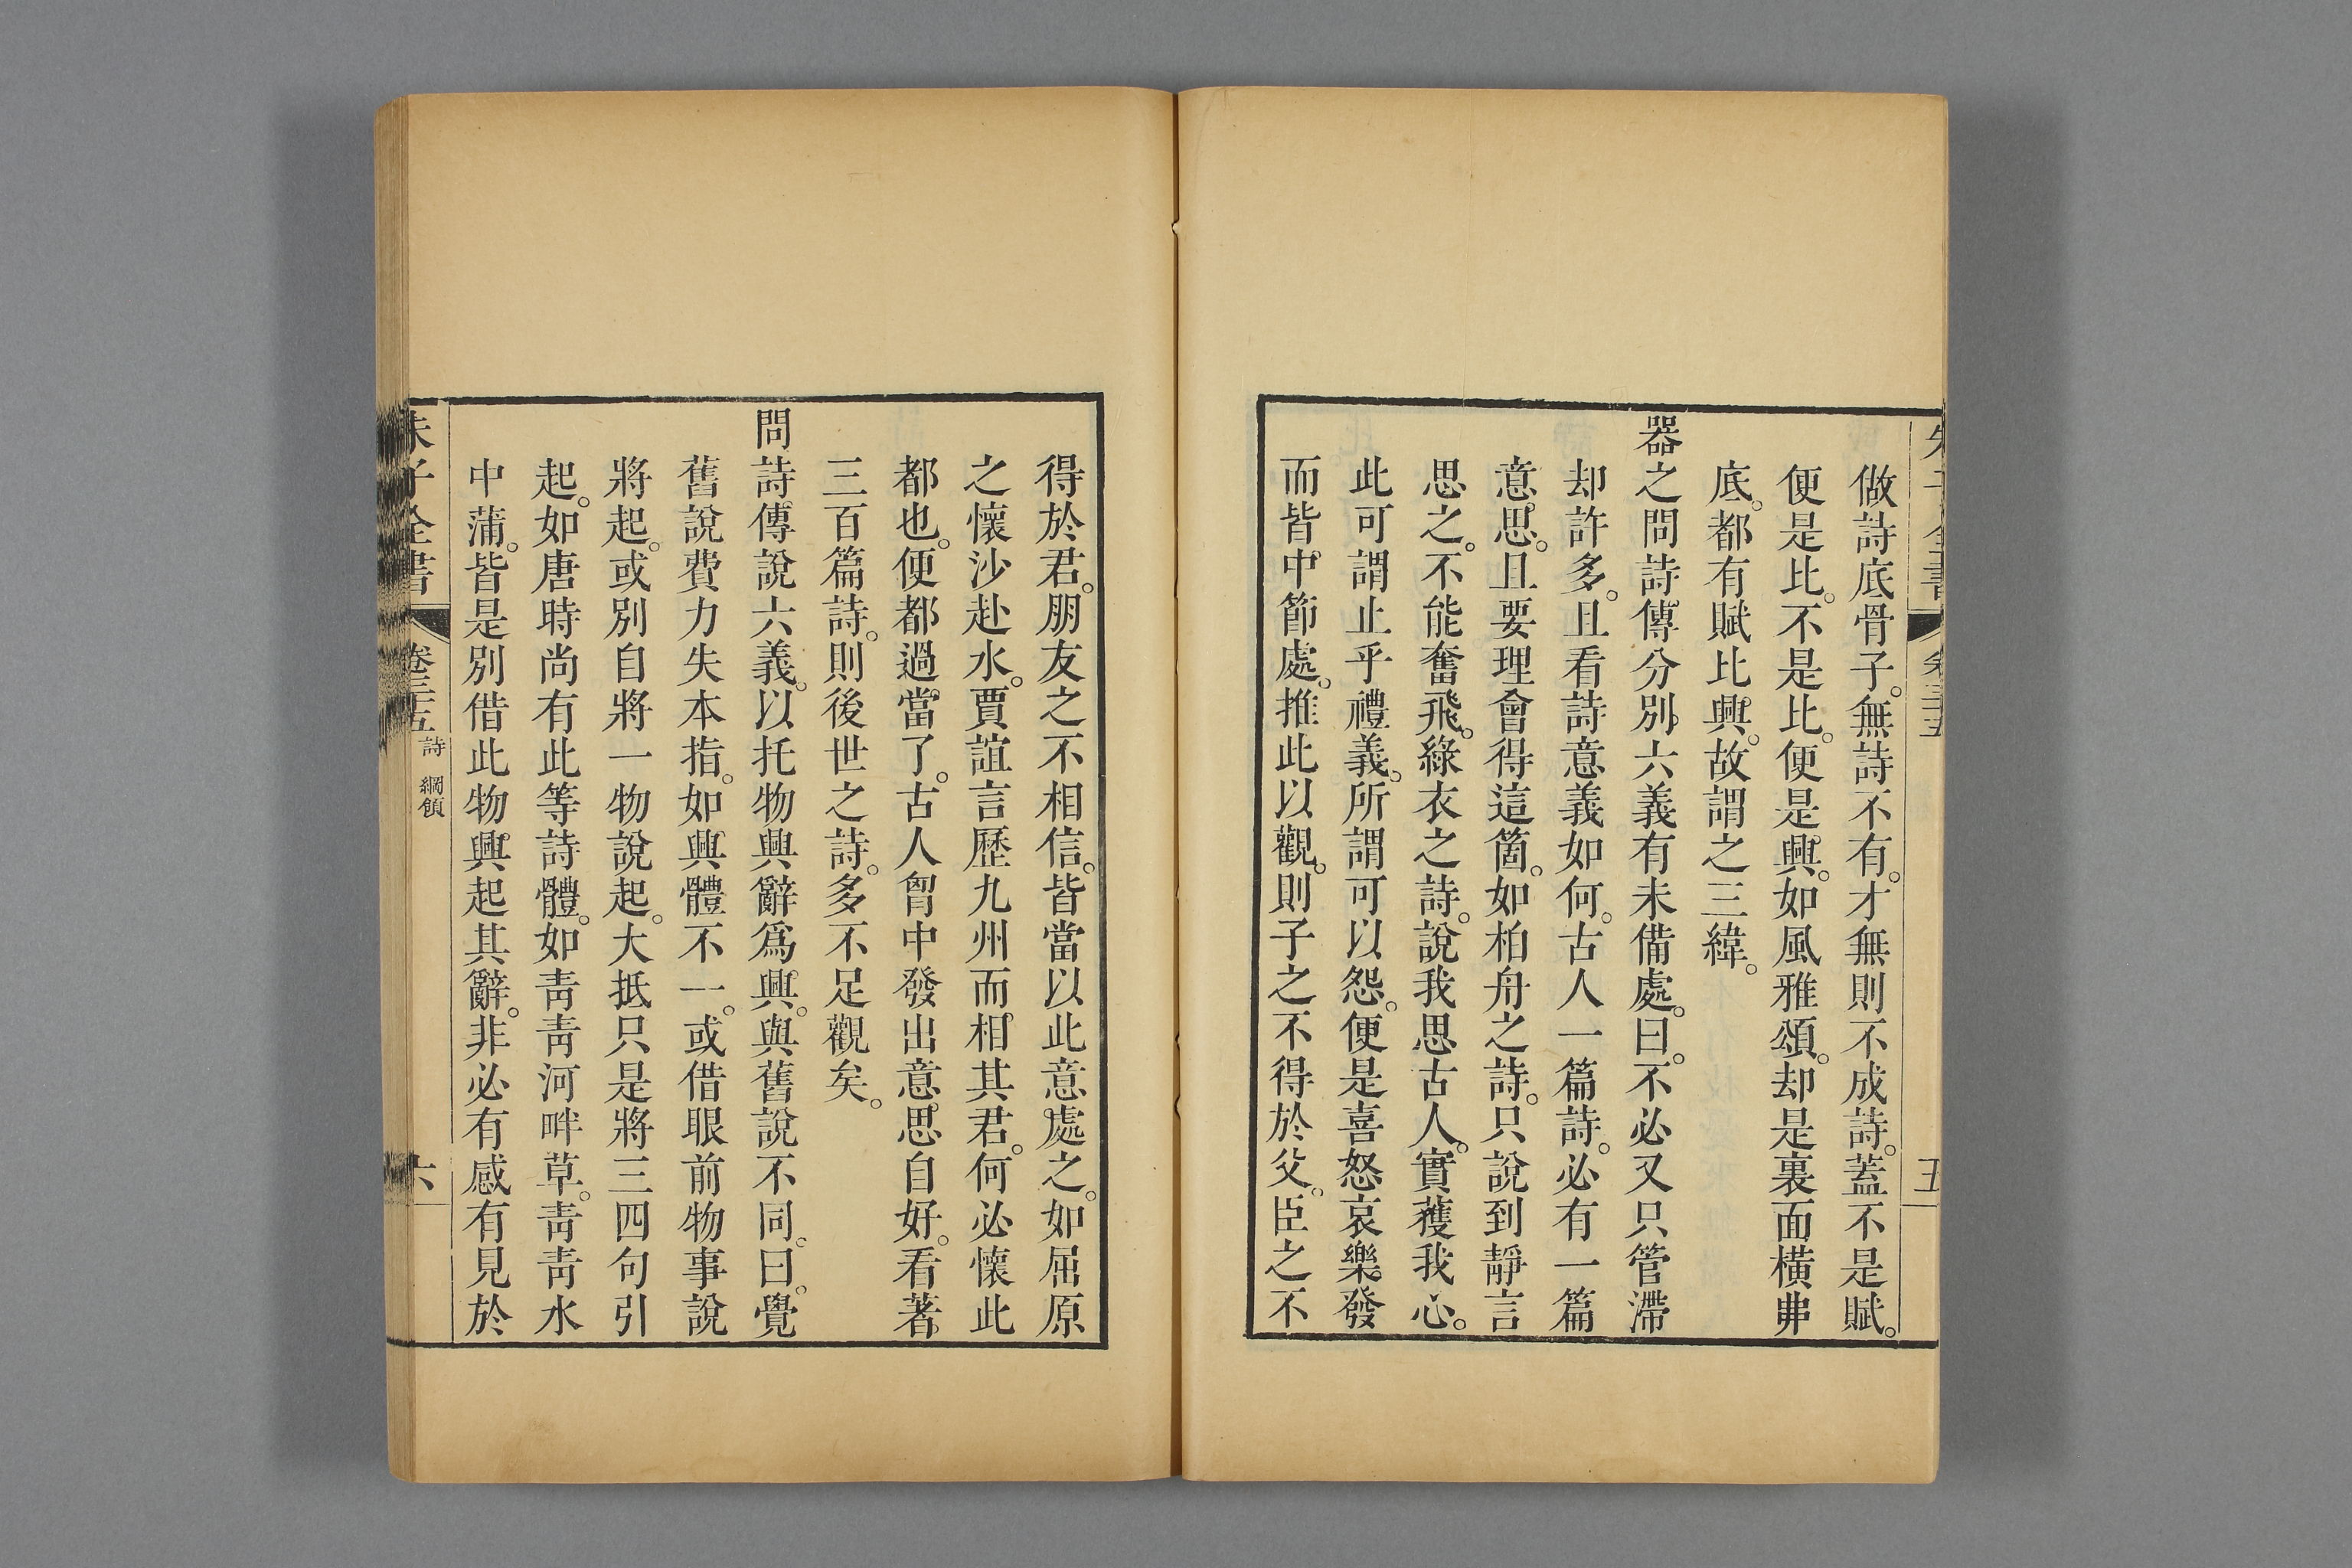 朱子全書 卷三十五 五
做詩底骨子。無詩不有。才無則不成詩。蓋不是賦。
便是比。不是比。便是興。如風雅頌。却是裏面橫丳
底。都有賦比興。故謂之三緯。
器之問詩傳分別六義有未備處。曰。不必又只管滯
却許多。且看詩意義如何。古人一篇詩。必有一篇
意思。且要理會得這箇。如柏舟之詩。只說到靜言
思之。不能奮飛。綠衣之詩。說我思古人。實獲我心。
此可謂止乎禮義。所謂可以怨。便是喜怒哀樂發
而皆中節處。推此以觀。則子之不得於父。臣之不
得於君。朋友之不相信。皆當以此意處之。如屈原
之懷沙赴水。賈誼言歷九州而相其君。何必懷此
都也。便都過當了。古人胷中發出意思自好。看著
三百篇詩。則後世之詩。多不足觀矣。
問詩傳說六義。以托物興辭爲興。與舊說不同。曰。覺
舊說費力失本指。如興體不一。或借眼前物事說
將起。或別自將一物說起。大抵只是將三四句引
起。如唐時尚有此等詩體。如靑靑河畔草。靑靑水
中蒲。皆是別借此物興起其辭。非必有感有見於
朱子全書 卷三十五 詩 綱領 六